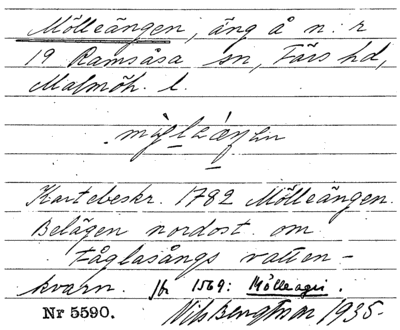 Mölleängen, äng å n:r
19 Ramsåsa sn, Färs hd,
Malmöh. l.
Kartebeskr. 1782 Mölleängen.
Belägen nordost. om
Fåglasångs vatten-
kvarn. jfr 1569: Mölleagri.
Nr 5590. Nils Bengtsson 1935.